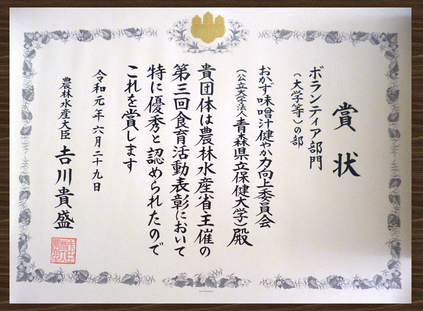 賞状
ボランティア部門
(大学等)の部
おかず味噌汁健やか力向上委員会
(公立大学法人青森県立保健大学)殿
貴団体は農林水産省主催の
第三回食育活動表彰において
特に優秀と認められたので
これを賞します
令和元年六月二十九日
農林水産大臣 𠮷川貴盛